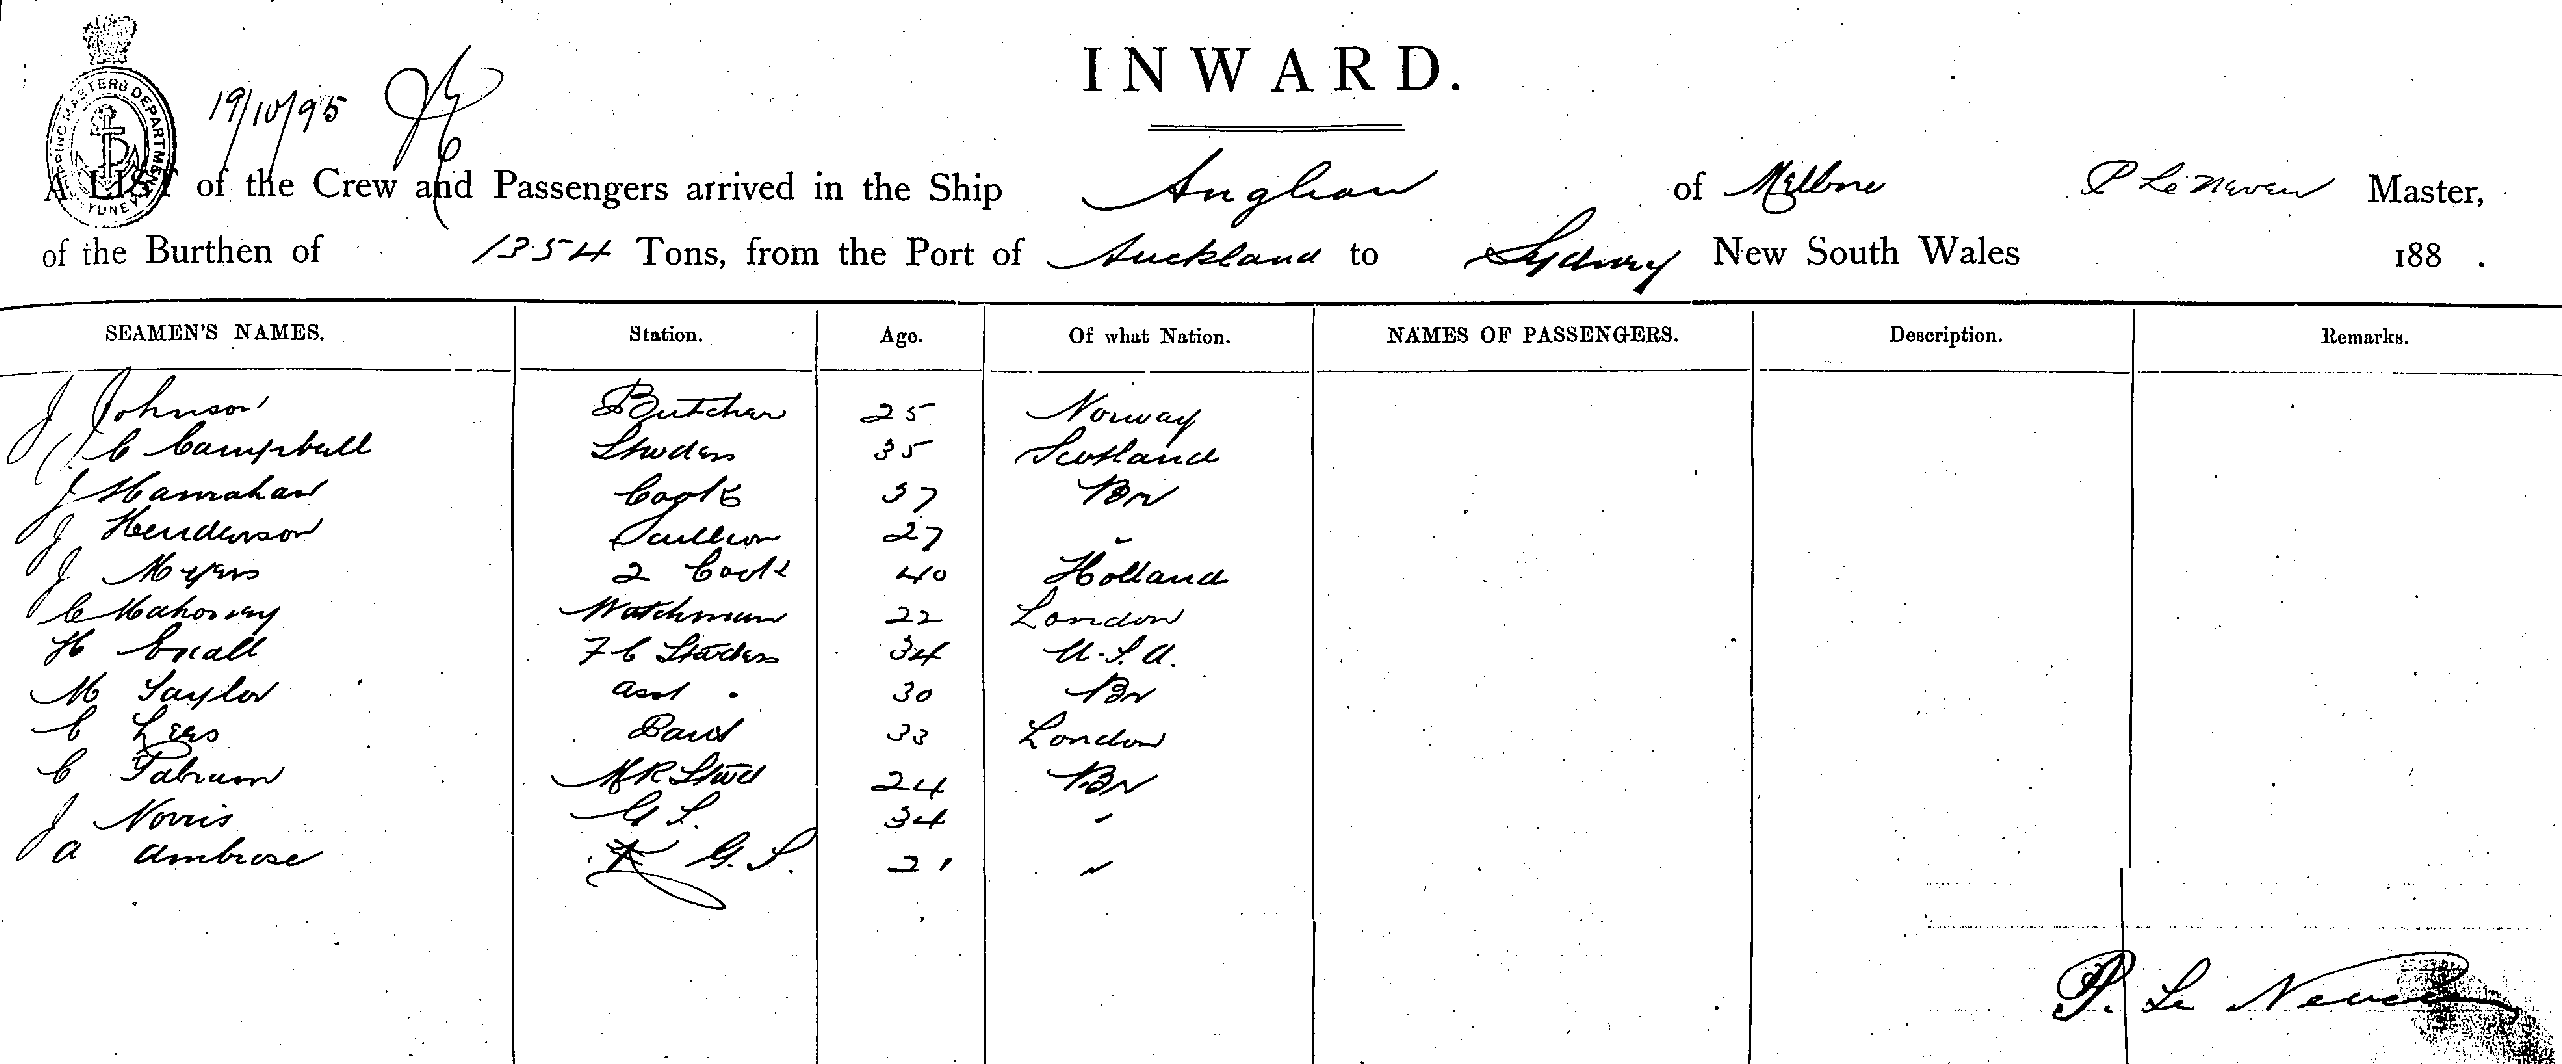 INWARD.
19/10/95
SHIPPING MASTERS DEPARTMENT SYDNEY
A LIST of the Crew and Passengers arrived in the Ship Anglian of Melbne P Le Neven Master,
of the Burthen of 1354 Tons, from the Port of Auckland to Sydney New South Wales 188 .
SEAMEN'S NAMES. Station. Age. Of what Nation. NAMES OF PASSENGERS. Description. Remarks.
J Johnson Butcher 25 Norway
C Campbell Stwdess 35 Scotland
J Hanrahan Cook 37 Br
J Henderson Scullion 27 "
J Myers 2 Cook 40 Holland
C Mahoney Watchman 22 London
H Excall F C Stwdess 34 U.S.A.
M Taylor Asst " 30 Br
C Lees 33 London
C M R Stwd 24 Br
J Norris G S. 34 "
A Ambrose G. S. 21 "
P. Le Neven